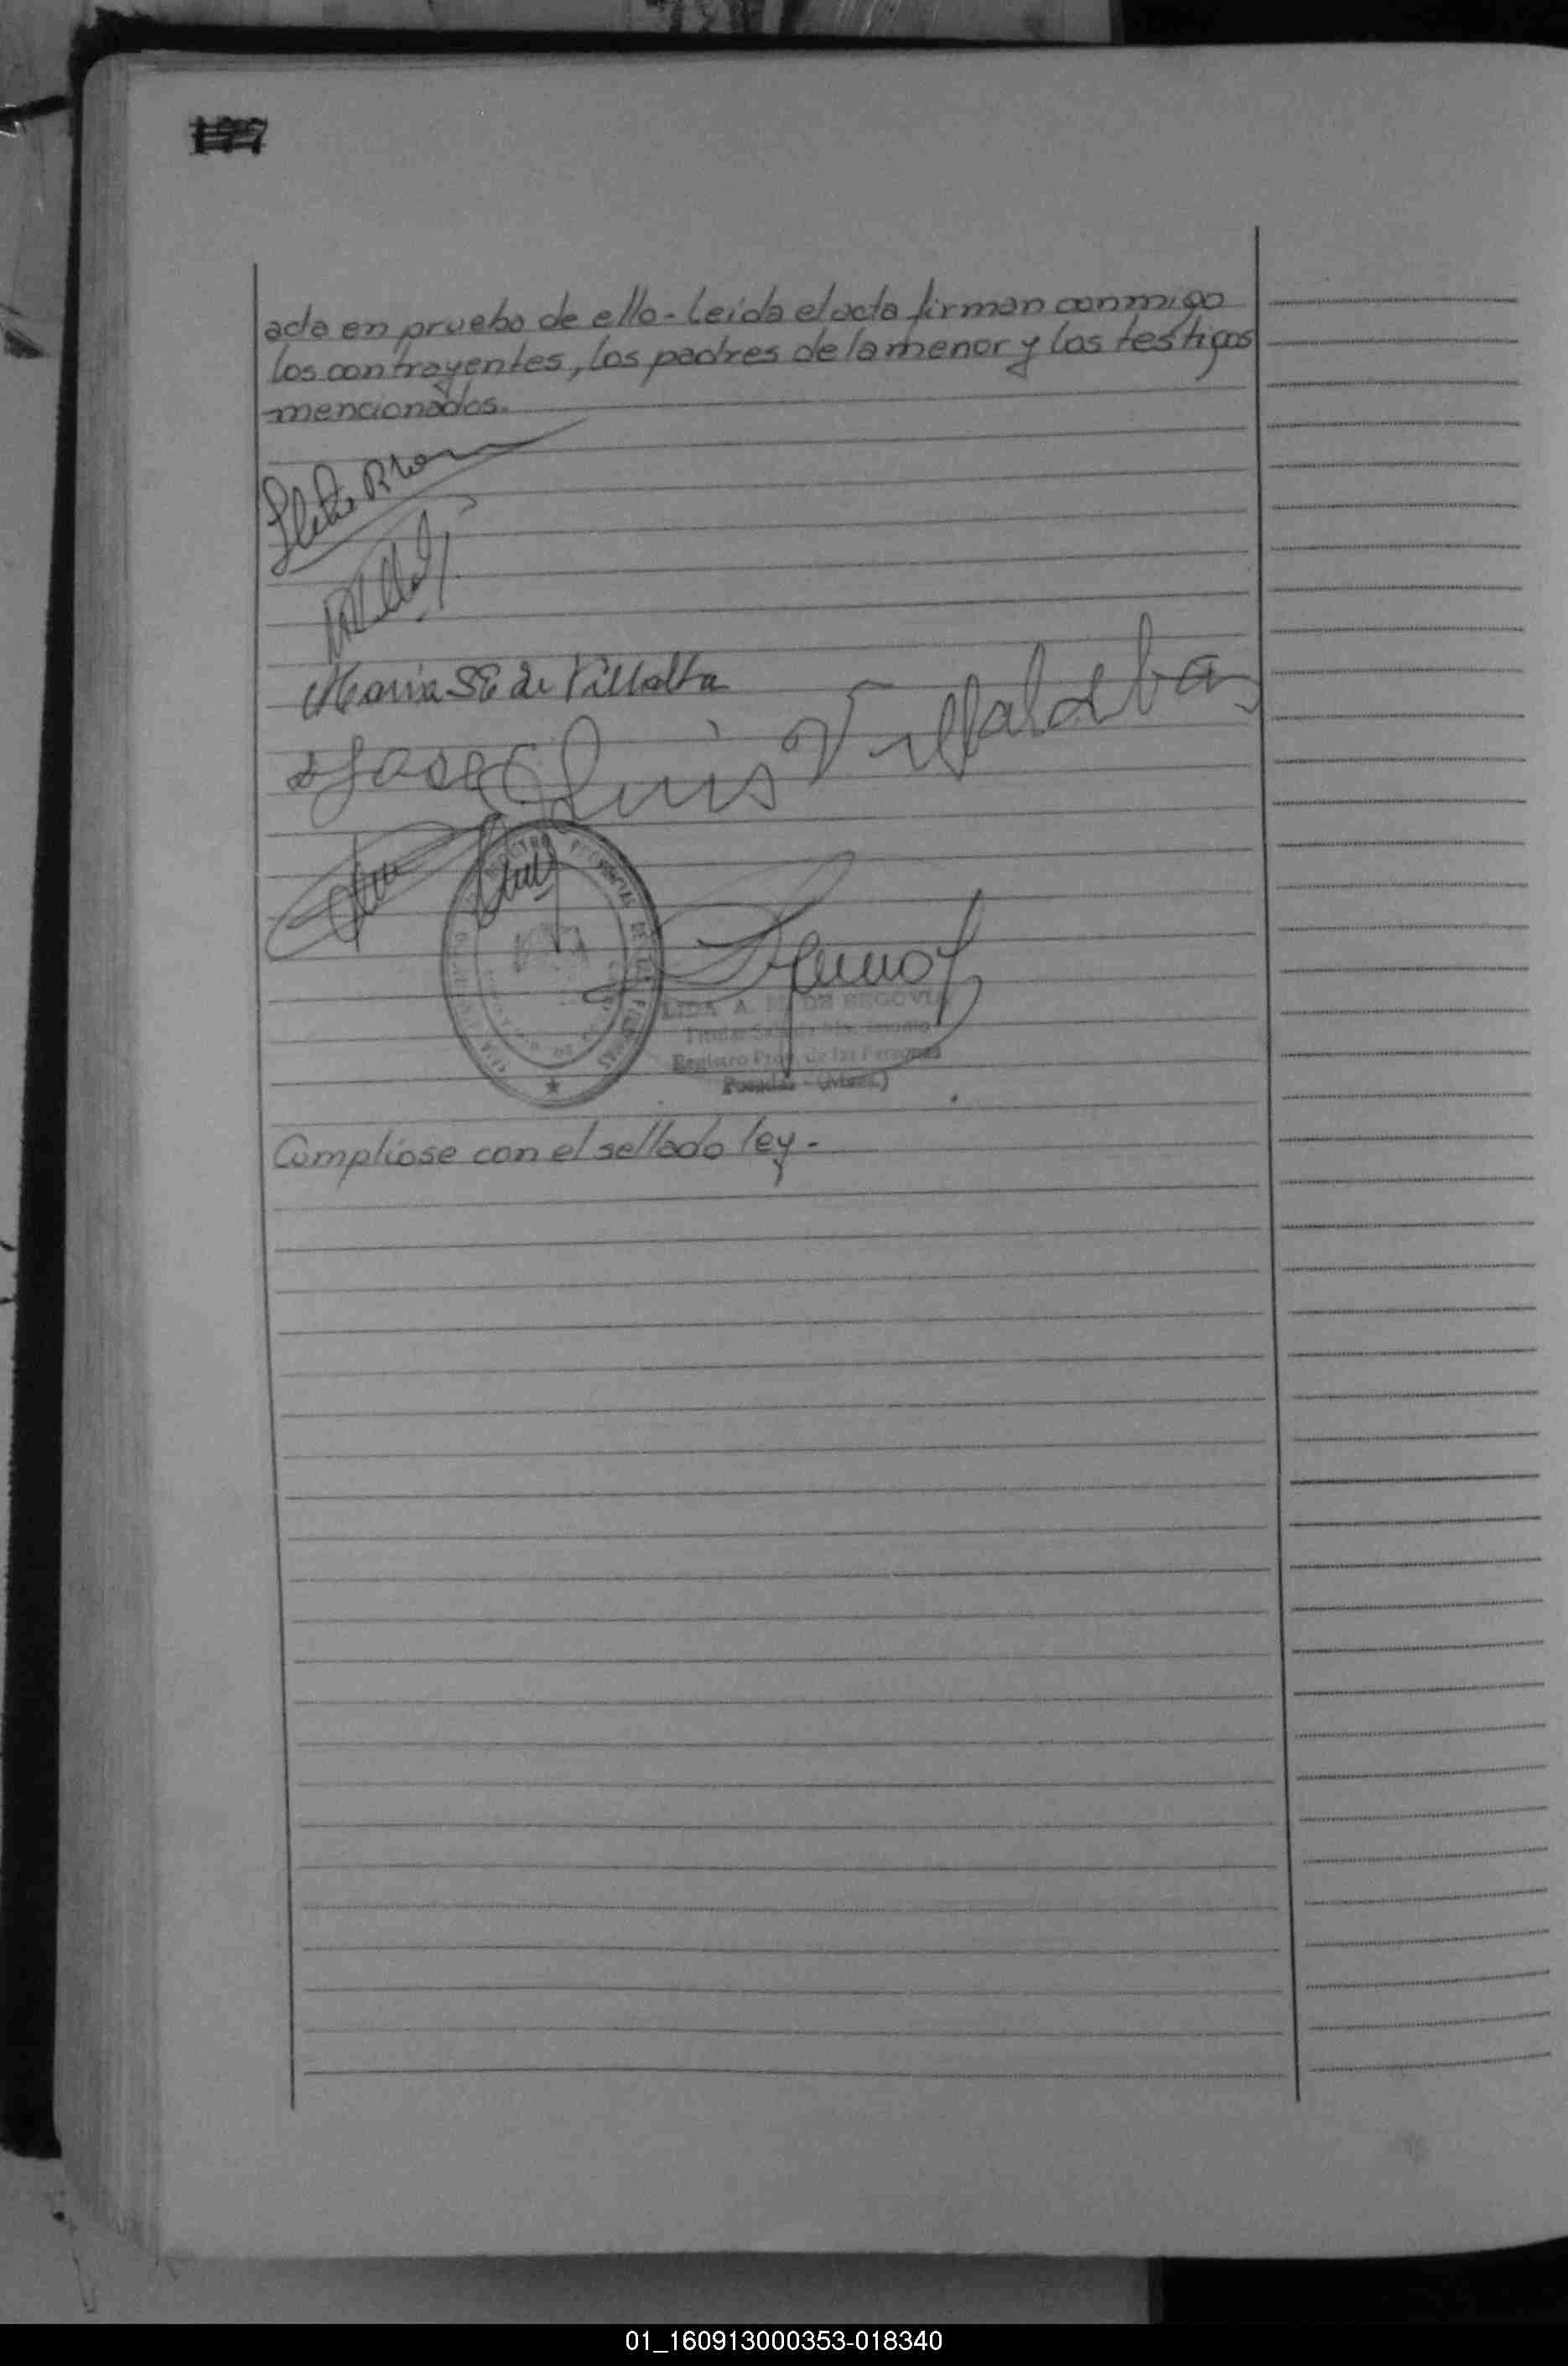 177
acta en prueba de ello - Leída el acta firman conmigo
los contrayentes, los padres de la menor y los testigos
mencionados.
María SE de Villalba
Jose Luis Villalba
REGISTRO PROVINCIAL DE LAS PERSONAS
LIDA A. M. DE SEGOVIA
Titular
Registro Prov. de las Personas
Posadas - (Mnes.)
Cúmpliose con el sellado ley.-
01_160913000353-018340